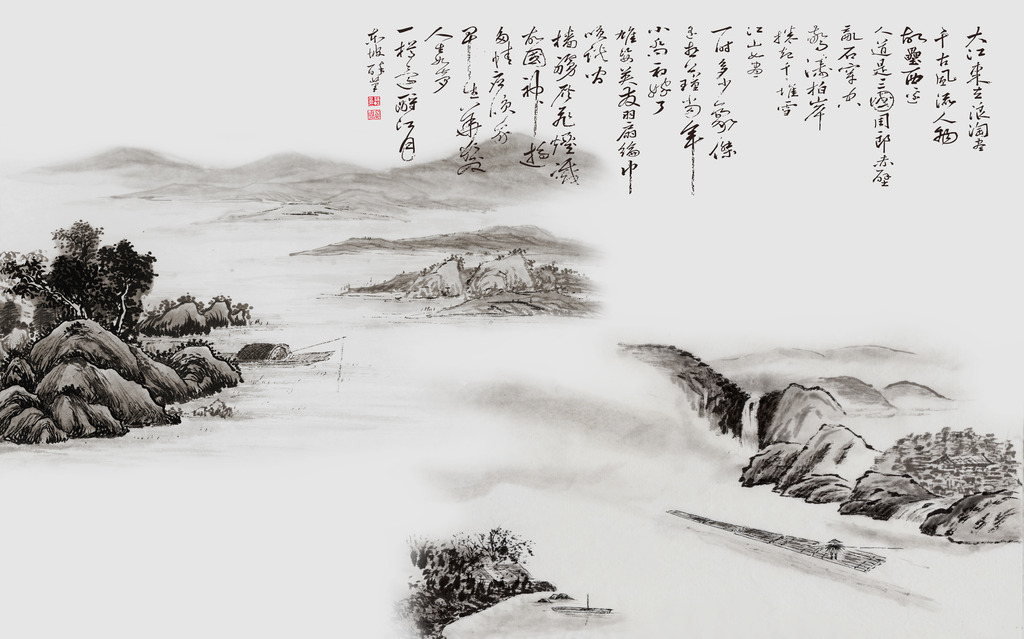 大江東去浪淘尽
千古風流人物
故壘西边
人道是三國周郎赤壁
亂石穿空
驚濤拍岸
捲起千堆雪
江山如畫
一时多少豪傑
遥想公瑾当年
小乔初嫁了
雄姿英发羽扇綸巾
谈笑间
樯橹灰飛煙滅
故國神遊
多情应笑我
早生華髮
人生如梦
一樽還酹江月
东坡